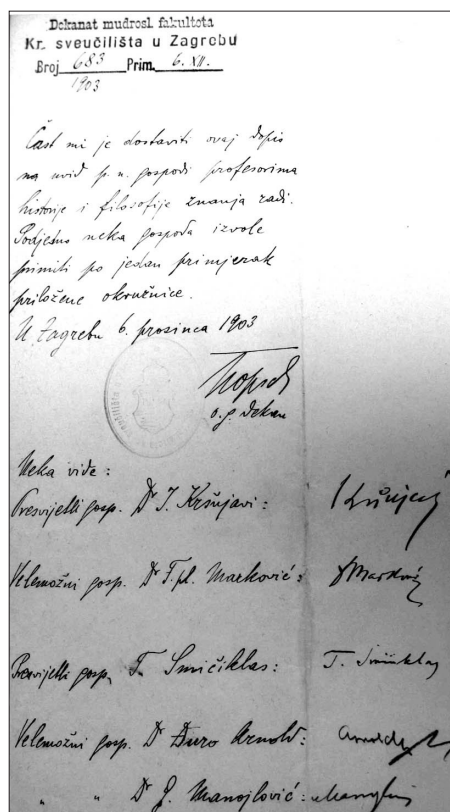 Dekanat mudrosl. fakulteta
Kr. sveučilišta u Zagrebu
Broj 683 Prim. 6. XII.
1903
Čast mi je dostaviti ovaj dopis
na uvid p. n. gospodi profesorima
historije i filosofije znanja radi.
Podjedno neka gospoda izvole
primiti po jedan primjerak
priložene okružnice.
U Zagrebu 6. prosinca 1903
o. g. dekan
Neka vide:
Presvijetli gosp. Dr I. Kršnjavi:
Velemožni gosp. Dr F. pl. Marković: Marković
Presvijetli gosp. T. Smičiklas: T. Smičiklas
Velemožni gosp. Dr Đuro Arnold:
" " Dr G. Manojlović: